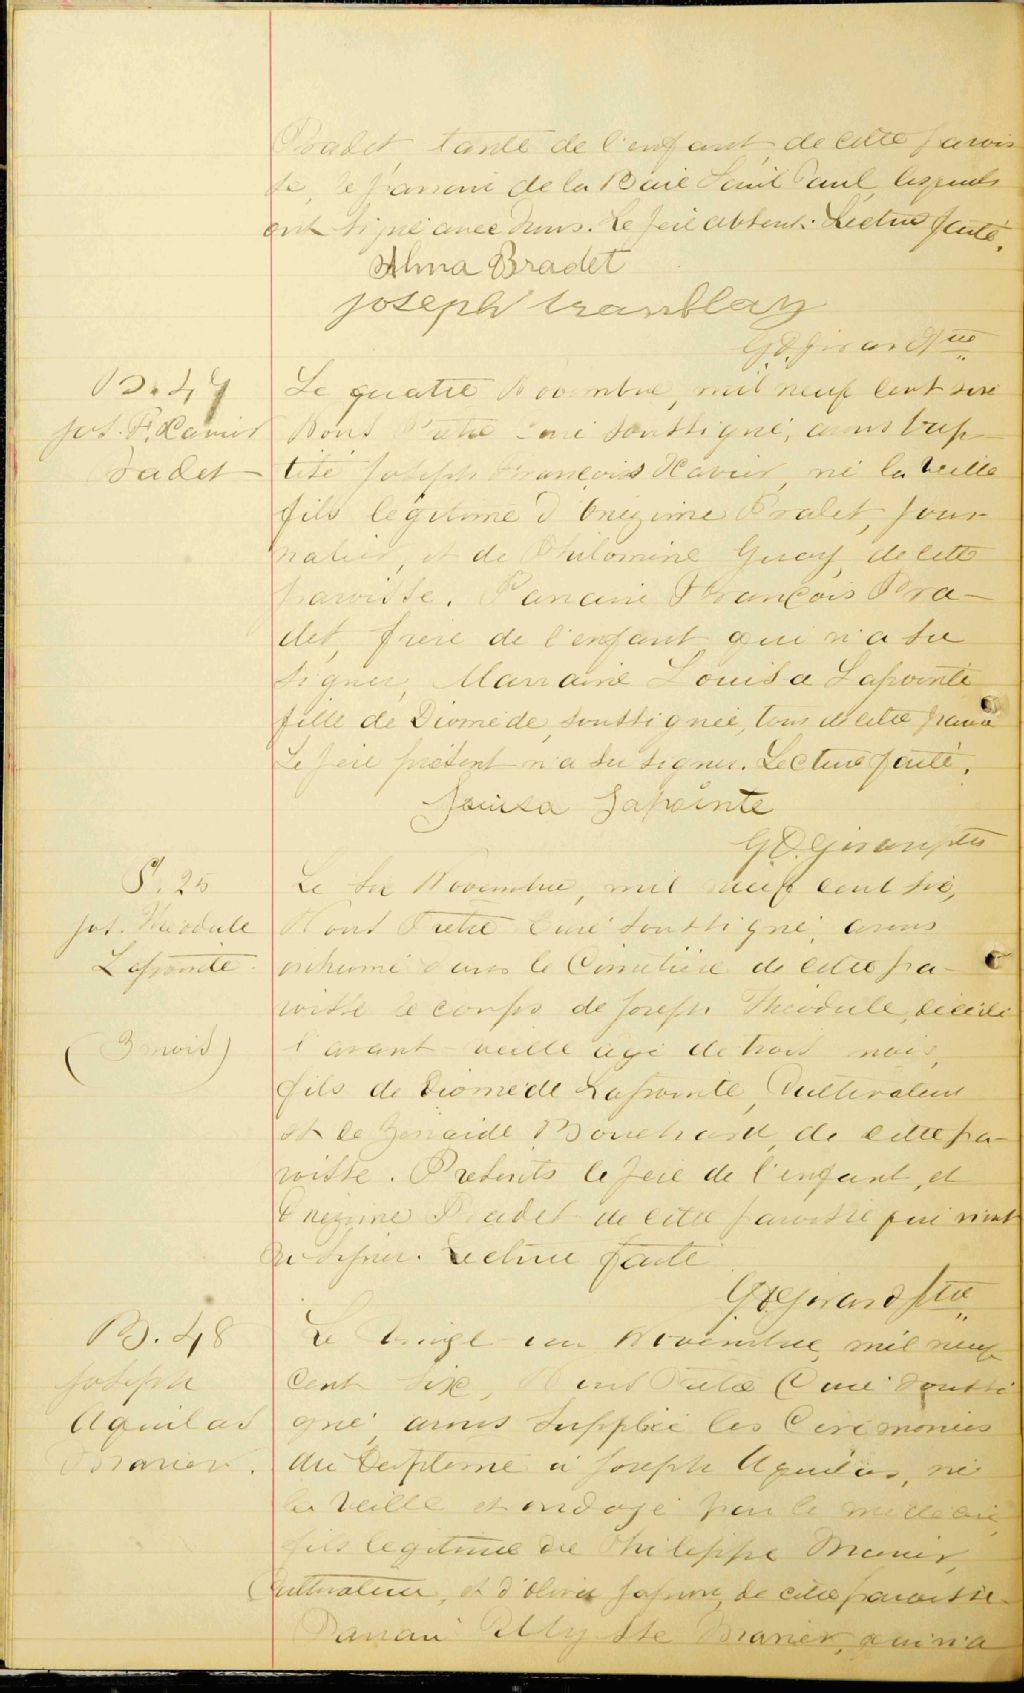 Bradet, tante de l'enfant, de cette parois
se, le parrain de la Baie Saint Paul, lesquels
ont signé avec nous. Le père absent. Lecture faite.
Alma Bradet
Joseph Tremblay
G. D. Girard Ptre
B. 47
Jos. F. Xavier
Bradet
Le quatre Novembre, mil neuf cent six
Nous Prêtre Curé soussigné, avons bap-
tisé Joseph François Xavier, né la veille
fils légitime d'Onézime Bradet, jour
nalier, et de Philomène Guay de cette
paroisse. Parrain François Bra-
det, frère de l'enfant qui n'a su
signer, Marraine Louisa Lapointe
fille de Diomède, soussignée, tous de cette parois
Le père présent n'a su signer. Lecture faite.
Louisa Lapointe
G. D. Girard ptre
S. 25
Jos. Théodule
Lapointe.
(3 mois)
Le six Novembre, mil neuf cent six,
Nous Prêtre Curé soussigné, avons
inhumé dans le Cimetière de cette pa-
roisse le corps de Joseph Théodule, décédé
l'avant-veille agé de trois mois,
fils de Diomède Lapointe, Cultivateur
et de Zénaïde Bouchard, de cette pa-
roisse. Présents le père de l'enfant, et
Onézime Bradet de cette paroisse qui n'ont
su signer. Lecture faite
G. D. Girard Ptre
B. 48
Joseph
Aquilas
Le vingt un Novembre, mil neuf
cent six, Nous Prêtre Curé soussi
gné, avons suppléé les Cérémonies
du Baptême à Joseph Aquilas, né
la veille et ondoyé par le médecin,
fils légitime de Philippe
Cultivateur, et d' de cette paroisse.
Parrain Ulysse qui n'a